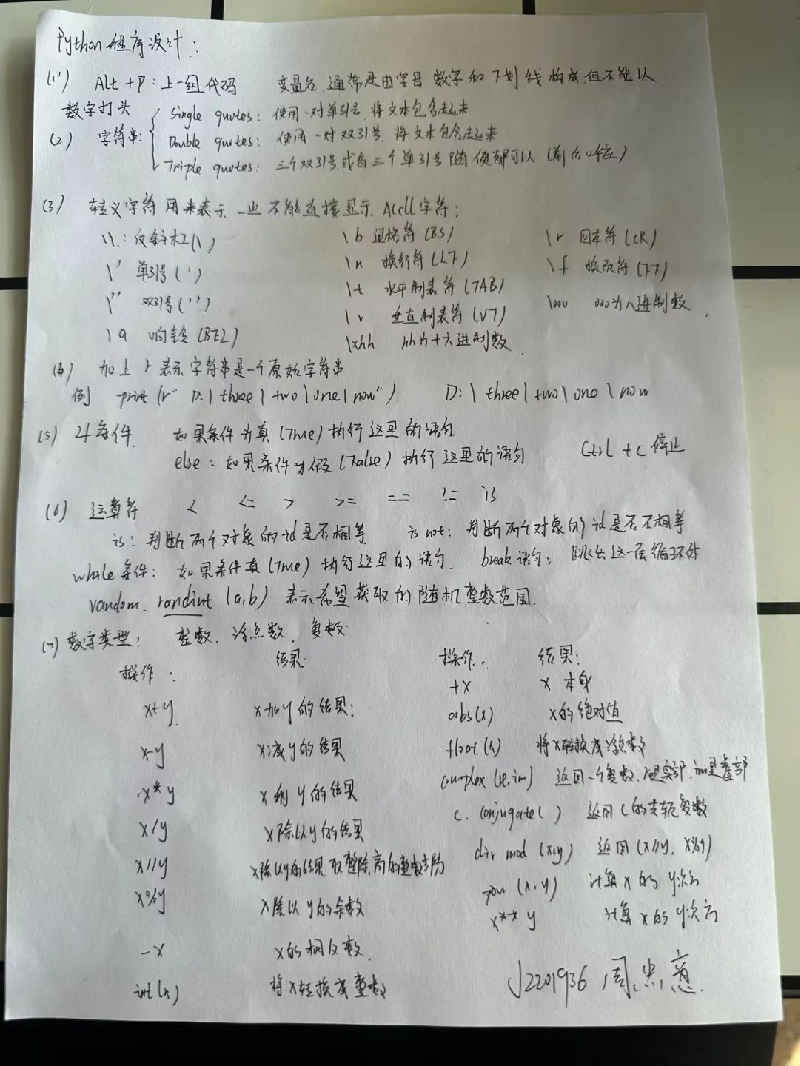 Python程序设计:
(1) Alt + P: 上一组代码 变量名 通常是由字母 数字和下划线构成,但不能以
数字打头
(2) 字符串: Single quotes: 使用一对单引号,将文本包含起来
Double quotes: 使用一对双引号,将文本包含起来
Triple quotes: 三个双引号或者三个单引号随便都可以
(3) 转义字符 用来表示一些不能直接显示 Ascll字符:
\\: 反斜杠(\) \b 退格符(BS) \r 回车符(CR)
\' 单引号(') \n 换行符(LF) \f 换页符(FF)
\" 双引号('') \t 水平制表符(TAB)
\v 垂直制表符(VT) \ooo ooo为八进制数
\a 响铃(BEL) \xhh hh为十六进制数
(4) 加上r表示字符串是一个原始字符串
例 print (r" D:\three\two\one\now") D:\three\two\one\now
(5) if 条件 如果条件为真(True)执行这里的语句
else: 如果条件为假(False)执行这里的语句 Ctrl + c 停止
(6) 运算符 < <= > >= == != is
is: 判断两个对象的id是否相等 is not: 判断两个对象的id是否不相等
while 条件: 如果条件真(True)执行这里的语句. break语句: 跳出这一层循环体
random. randint (a,b) 表示希望获取的随机整数范围.
(7) 数字类型: 整数、浮点数、复数
操作: 结果: 操作. 结果:
+x x 本身
x+y x加y的结果: abs(x) x的绝对值
x-y x减y的结果 float(x) 将x转换成浮点数
x*y x乘y的结果 complex (re,im) 返回一个复数,re是实部,im是虚部
x/y x除以y的结果 c. conjugate( ) 返回c的共轭复数
x//y x除以y的结果 div mod (x,y) 返回(x//y, x%y)
x%y x除以y的余数 pow (x,y) 计算x的y次方
x**y 计算x的y次方
-x x的相反数
int(x) 将x转换成整数
J2201936 周忠